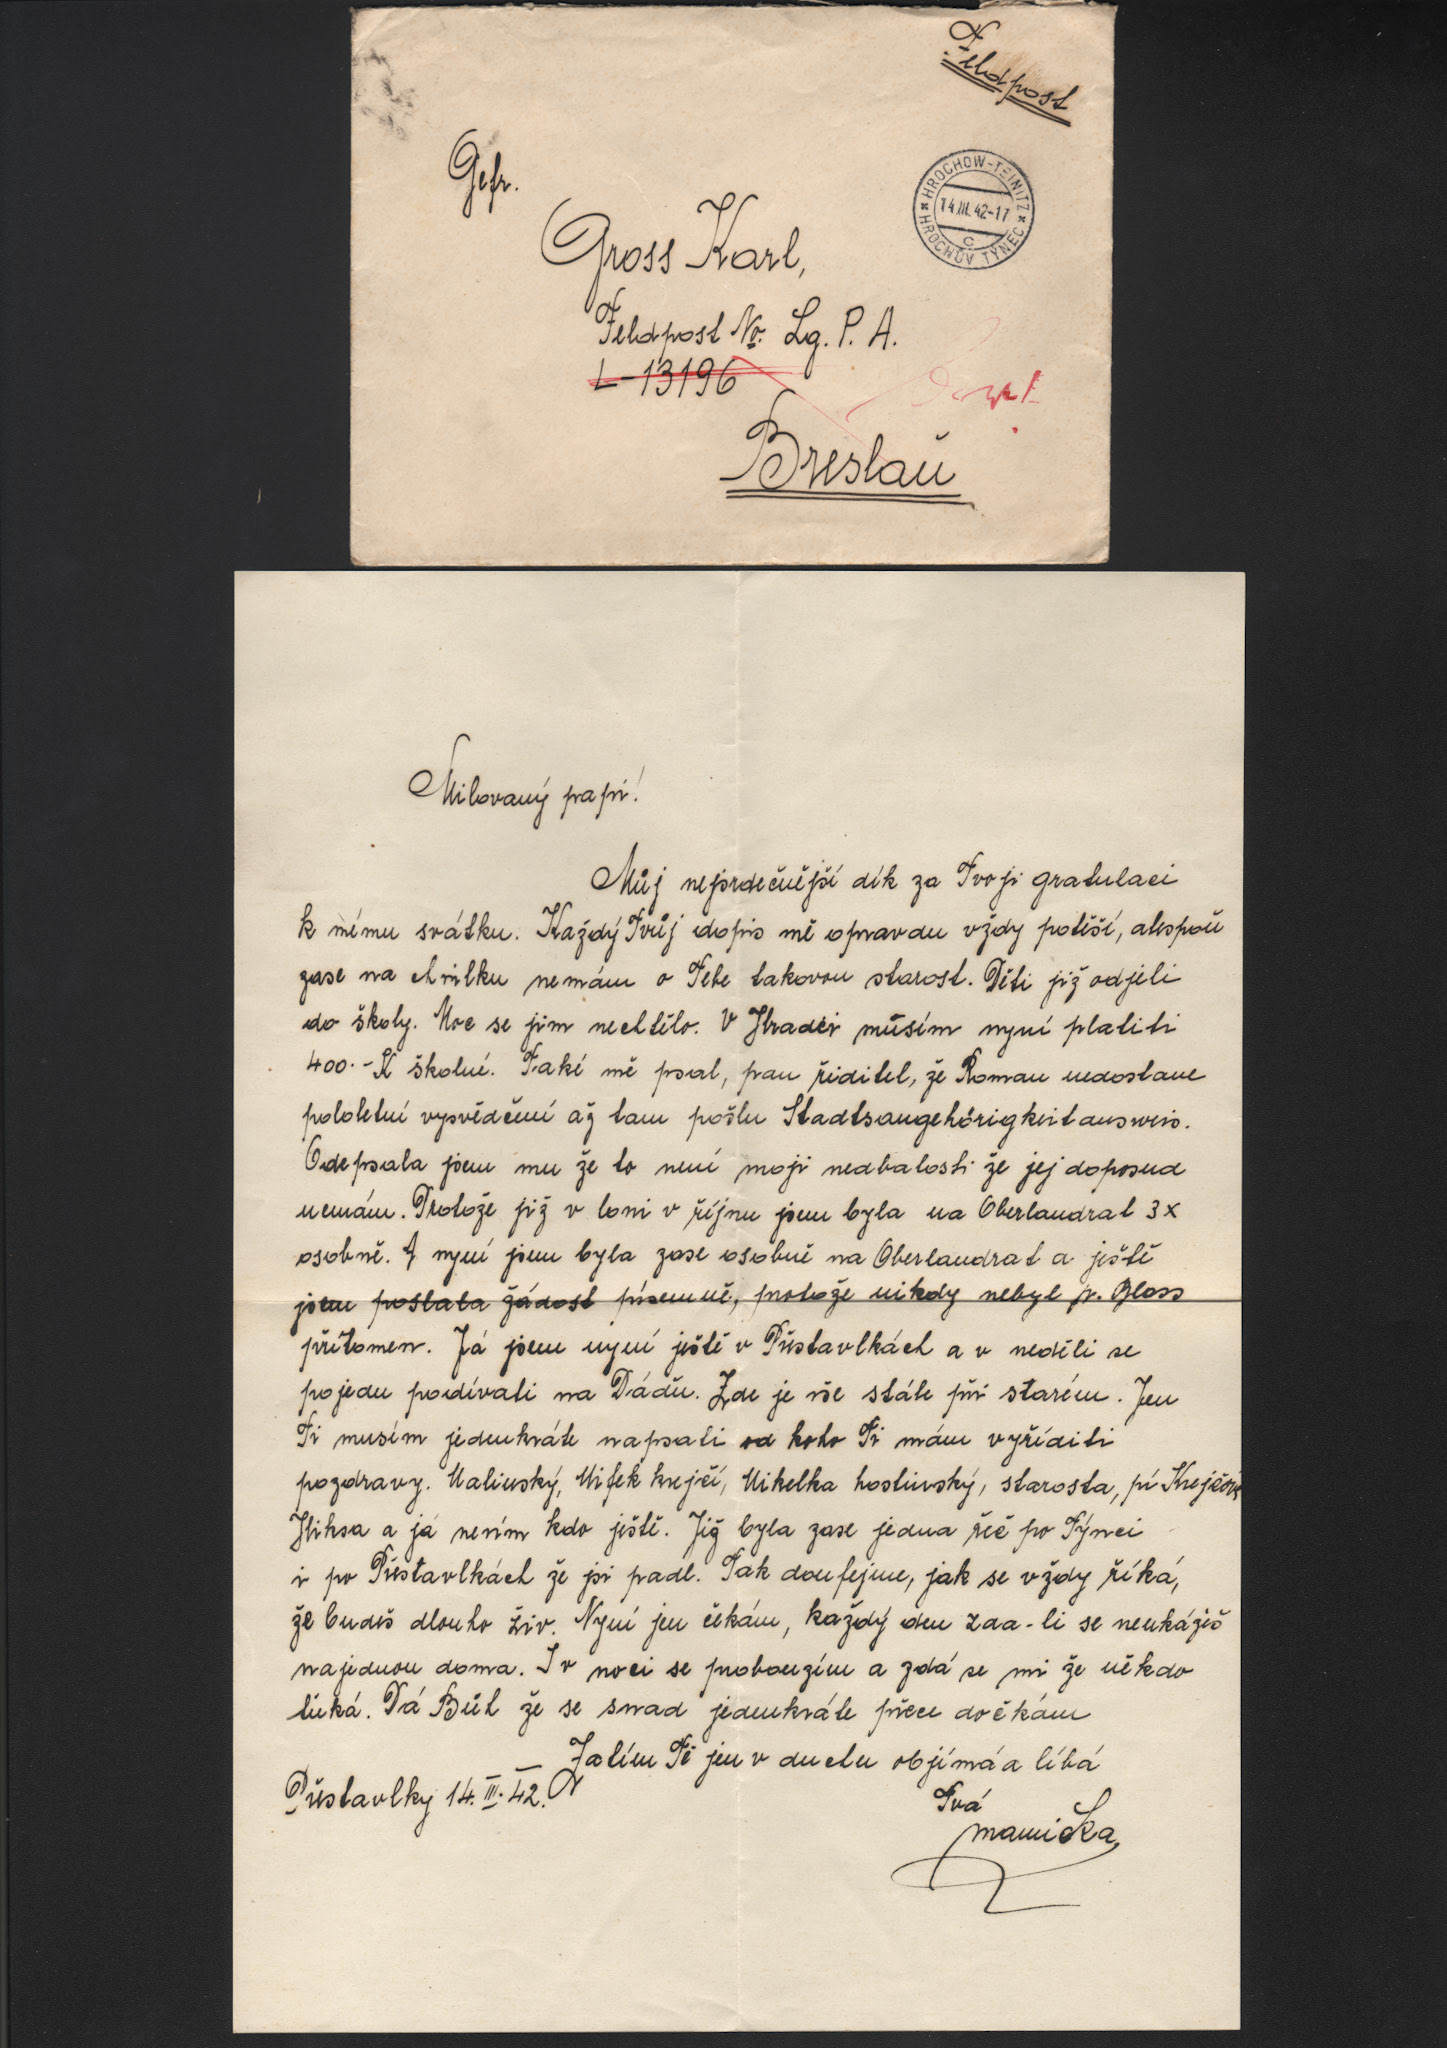 Feldpost
Gefr.
HROCHOW-TEINITZ
14.III.42-17
c
HROCHŮV TÝNEC
Gross Karl,
Feldpost No. Lg. P. A.
L-13196
Breslau
Milovaný papi!
Můj nejsrdečnější dík za Tvoji gratulaci
k mému svátku. Každý Tvůj dopis mě opravdu vždy potěší, alespoň
zase na chvilku nemám o Tebe takovou starost. Děti již odjeli
do školy. Moc se jim nechtělo. V Hradci musím nyní platiti
400.-K školné. Také mě psal, pan řiditel, že Roman nedostane
pololetní vysvědčení až tam pošlu Stadtsangehörigkeitausweis.
Odepsala jsem mu že to není moji nedbalosti že jej doposud
nemám. Protože již v loni v říjnu jsem byla na Oberlandrat 3x
osobně. A nyní jsem byla zase osobně na Oberlandrat a ještě
jsem poslala žádost písemně, protože nikdy nebyl p. Gloss
přítomen. Já jsem nyní ještě v Přestavlkách a v neděli se
pojedu podívati na Dádu. Zde je vše stále při starém. Jen
Ti musím jedenkráte napsati od koho Ti mám vyříditi
pozdravy. Malinský, Mifek krejčí, Mikelka hostinský, starosta, pí Krejčová
Hiksa a já nevím kdo ještě. Již byla zase jedna řeč po Týnci
i po Přestavlkách že jsi padl. Tak doufejme, jak se vždy říká,
že budeš dlouho živ. Nyní jen čekám, každý den zda-li se neukážeš
najednou doma. I v noci se probouzím a zdá se mi že někdo
ťuká. Dá Bůh že se snad jedenkráte přece dočkám
Zatím Tě jen v duchu objímá a líbá
Přestavlky 14. III. 42.
Tvá
mamička,